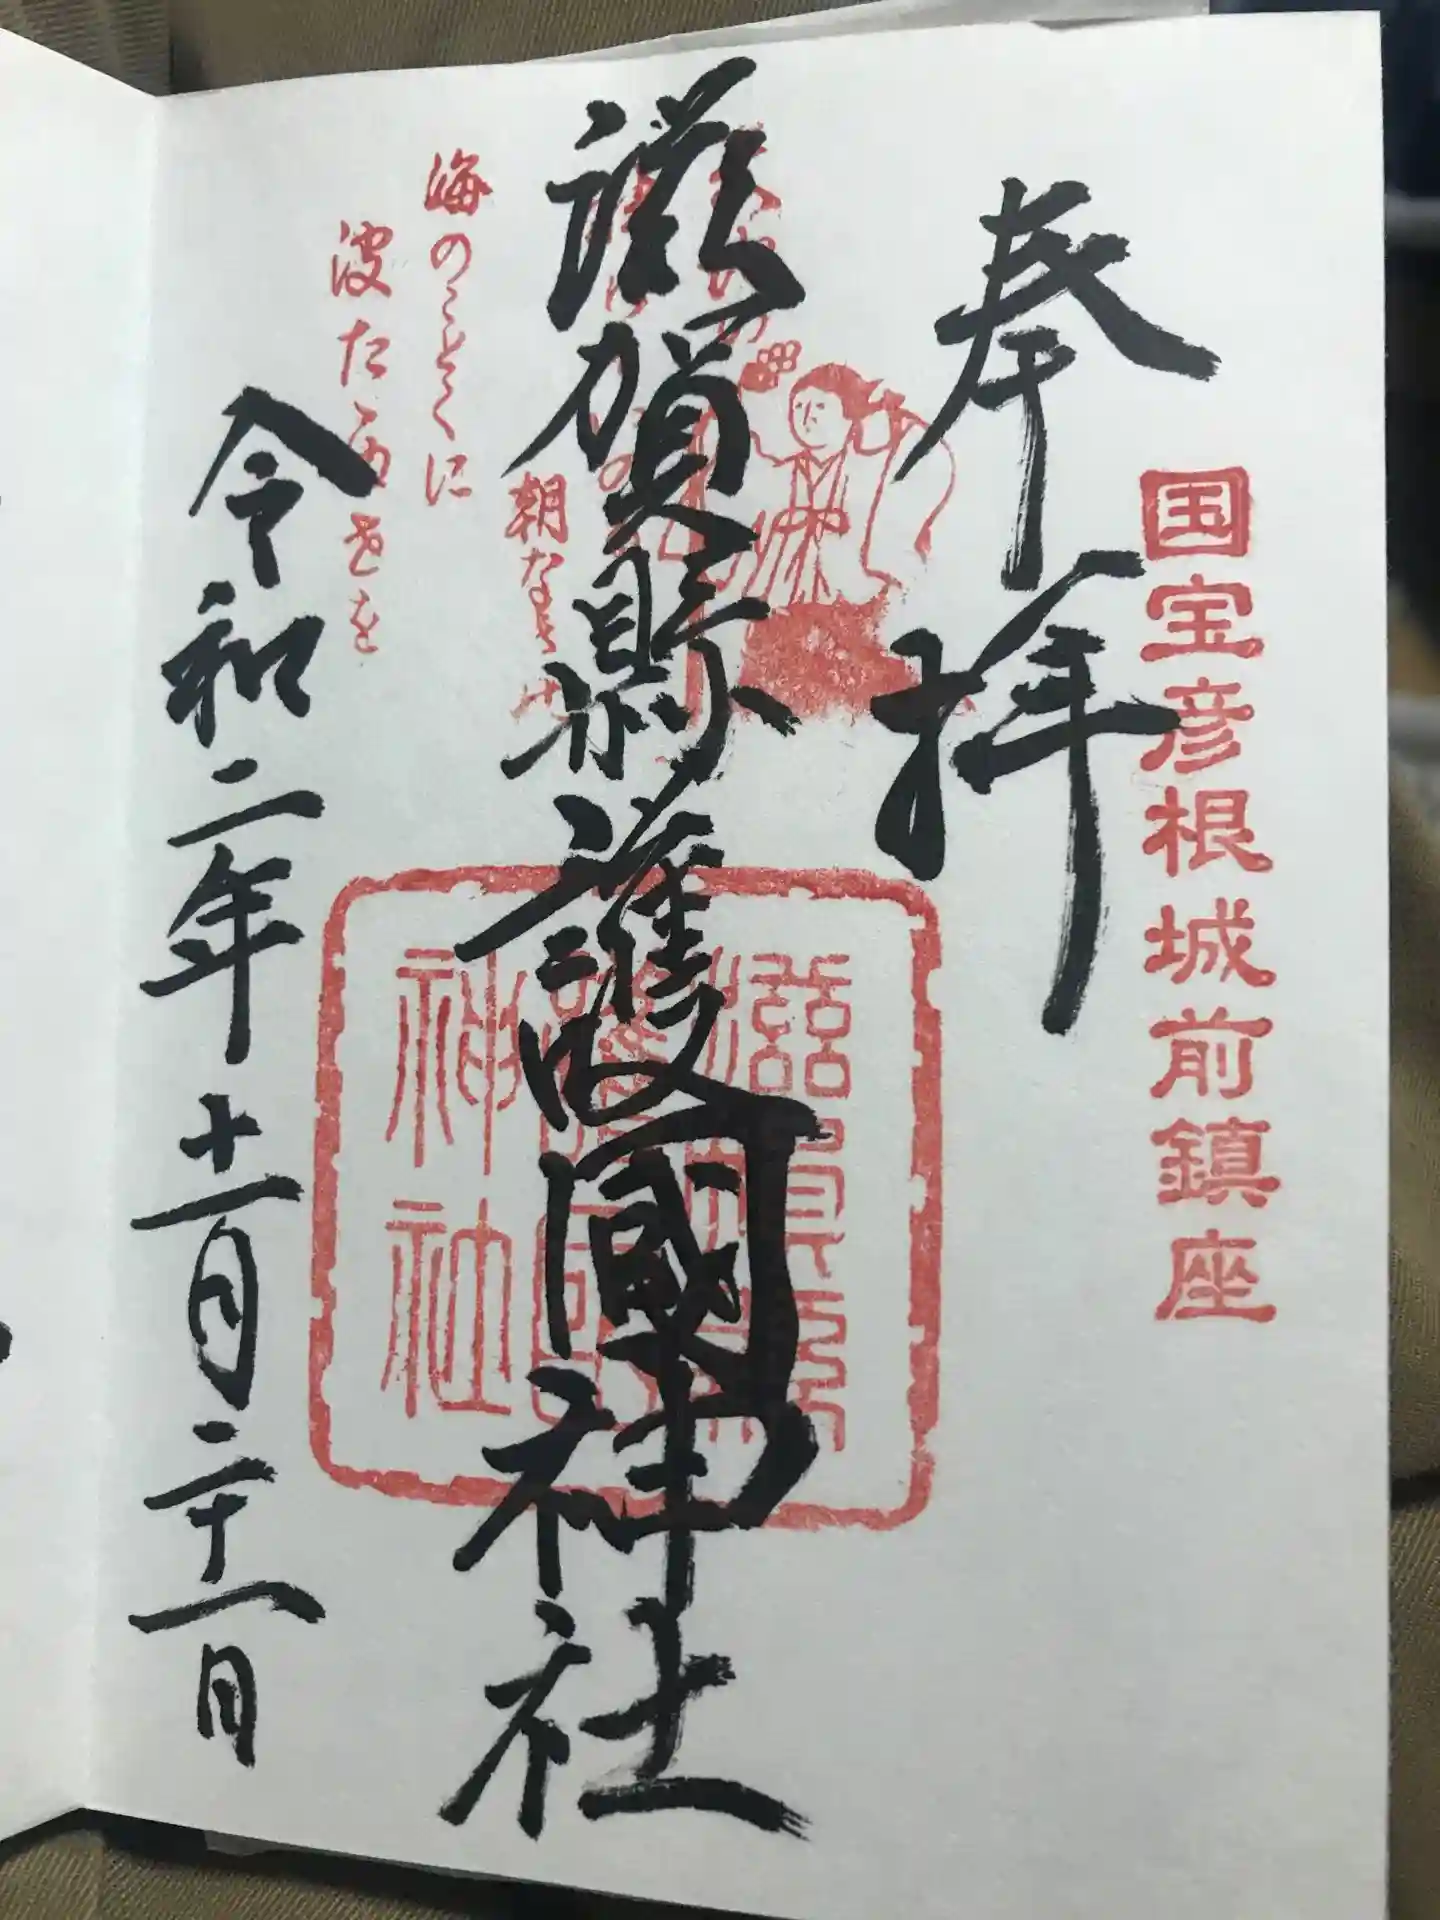 国宝彦根城前鎮座
奉拝
滋賀縣護國神社
朝な
海のことくに
波た
を
令和二年十一月二十一日
滋賀縣
護國
神社